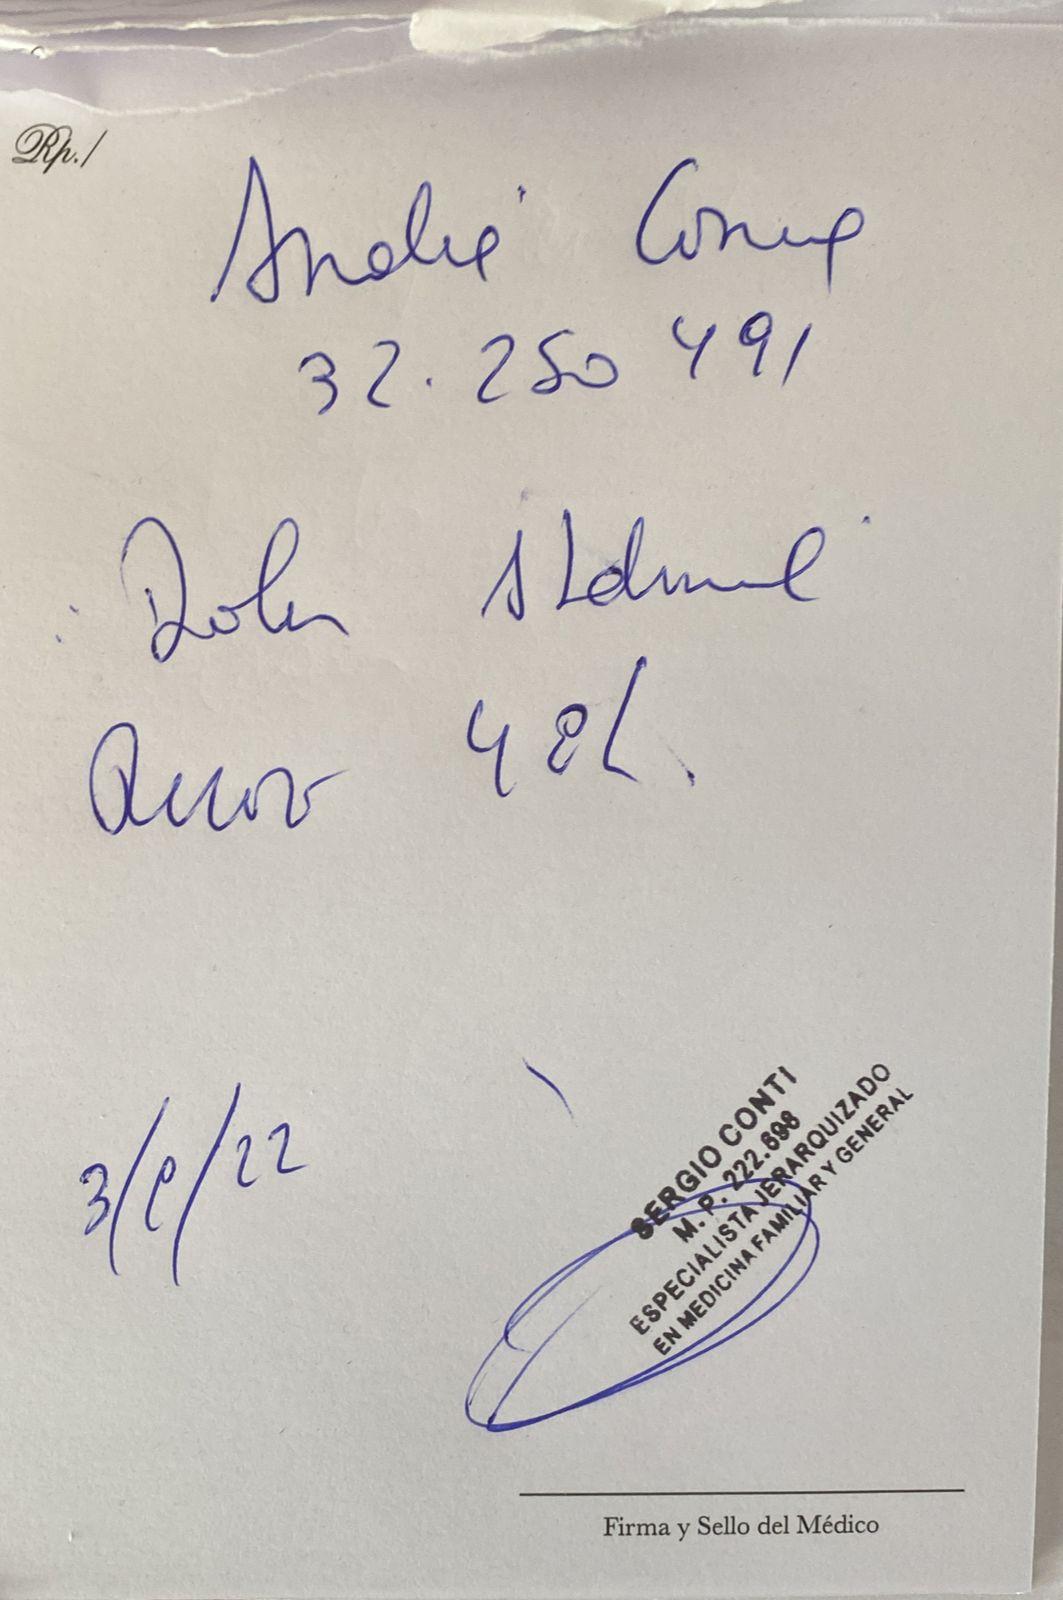 Rp./
32.250 491
Dolor Abdominal
Reposo 48h.
3/8/22
SERGIO CONTI
M. P. 222.696
ESPECIALISTA JERARQUIZADO
EN MEDICINA FAMILIAR Y GENERAL
Firma y Sello del Médico